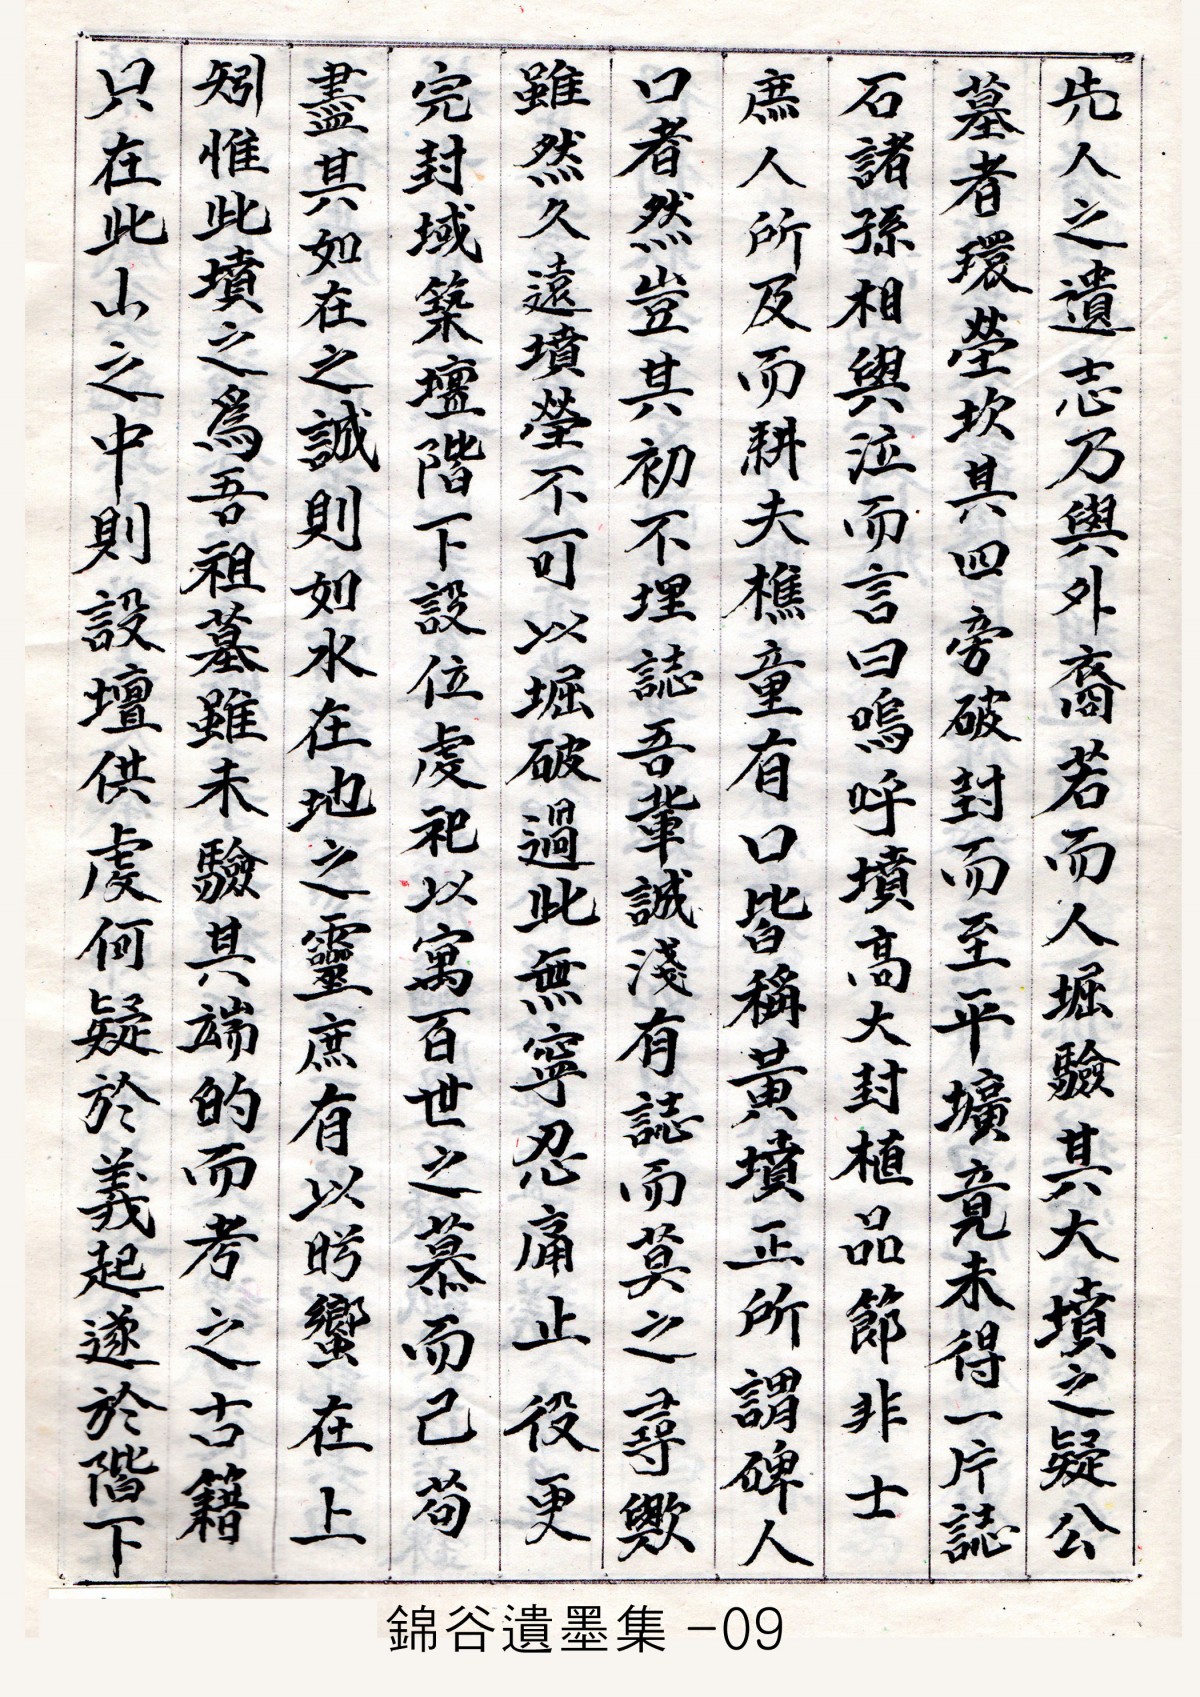 先人之遺志乃與外裔若而人堀驗其大墳之疑公
墓者環塋坎其四旁破封而至平壙竟未得一片誌
石諸孫相與泣而言曰嗚呼墳高大封植品節非士
庶人所及而耕夫樵童有口皆稱黃墳正所謂碑人
口者然豈其初不埋誌吾輩誠淺有誌而莫之尋歟
雖然久遠墳塋不可以堀破過此無寧忍痛止役更
完封域築壇階下設位處祀以寓百世之慕而己苟
盡其如在之誠則如水在地之靈庶有以肹蠁在上
矧惟此墳之爲吾祖墓雖未驗其端的而考之古籍
只在此山之中則設壇供處何疑於義起遂於階下
錦谷遺墨集 -09